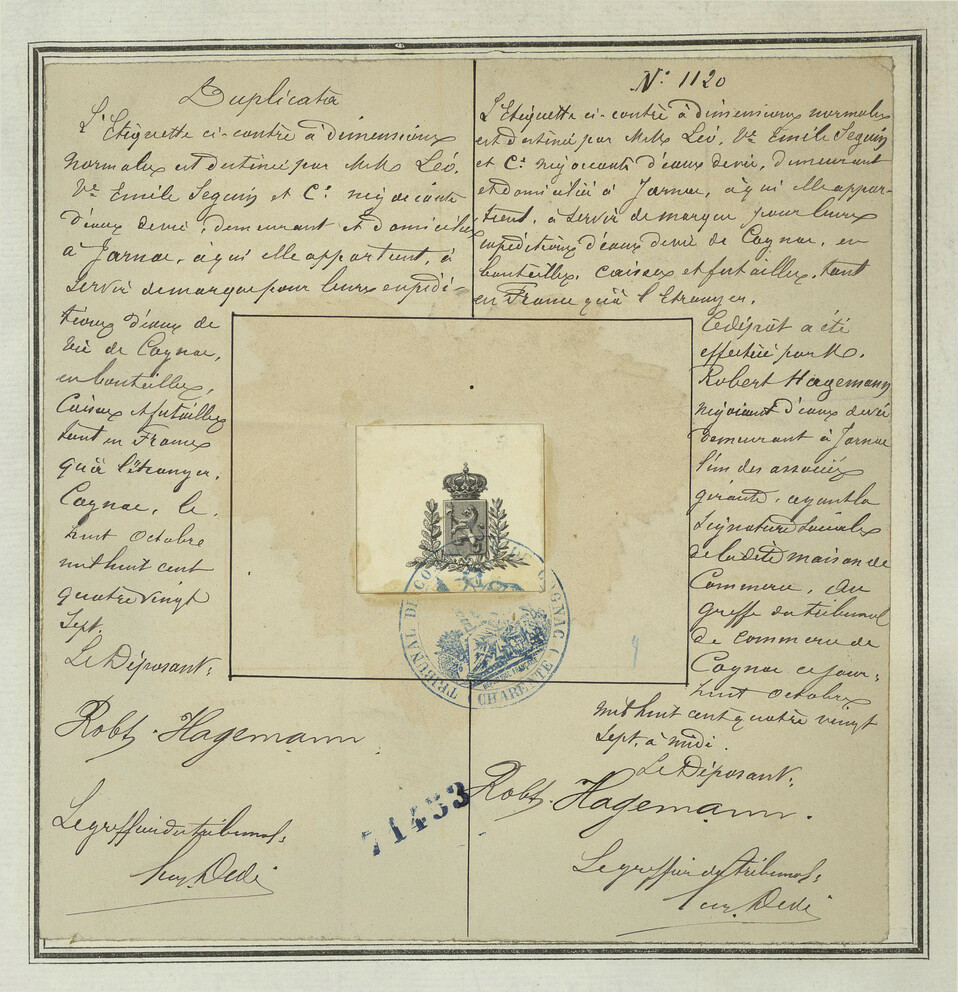 Duplicata
L'Etiquette ci-contre à dimensions
normales est destinée par M.M. Léo,
Vve Emile Seguin et Cie négociants
d'eaux de vie, demeurant et domiciliés
à Jarnac, à qui elle appartient, à
servir de marque pour leurs expédi-
tions d'eaux de
vie de Cognac,
en bouteilles,
caisses et futailles
tant en France
qu'à l'étranger.
Cognac, le
huit Octobre
mil huit cent
quatre vingt
sept.
Le Déposant:
Robt. Hagemann
Le greffier du tribunal:
Dedé
N° 1120
L'Etiquette ci-contre à dimensions normales
est destinée par M.M. Léo, Vve Emile Seguin
et Cie négociants d'eaux de vie, demeurant
et domiciliés à Jarnac, à qui elle appar-
tient, à servir de marque pour leurs
expéditions d'eaux de vie de Cognac, en
bouteilles, caisses et futailles, tant
en France qu'à l'Etranger.
Le dépôt a été
effectué par M.
Robert Hagemann
négociant d'eaux de vie
demeurant à Jarnac
l'un des associés
gérants, ayant la
signature sociale
de la dite maison de
Commerce, au
greffe du tribunal
de commerce de
Cognac ce jour,
huit Octobre
mil huit cent quatre vingt
sept, à midi.
Le Déposant:
Robt. Hagemann.
Le greffier du tribunal:
Dedé
TRIBUNAL DE COMMERCE DE COGNAC (CHARENTE)
71453